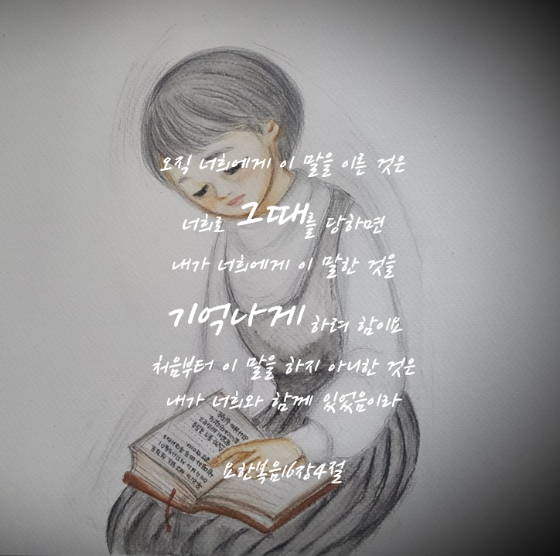 오직 너희에게 이 말을 이른 것은
너희로 그때를 당하면
내가 너희에게 이 말한 것을
기억나게 하려 함이요
처음부터 이 말을 하지 아니한 것은
내가 너희와 함께 있었음이라
요한복음16장4절